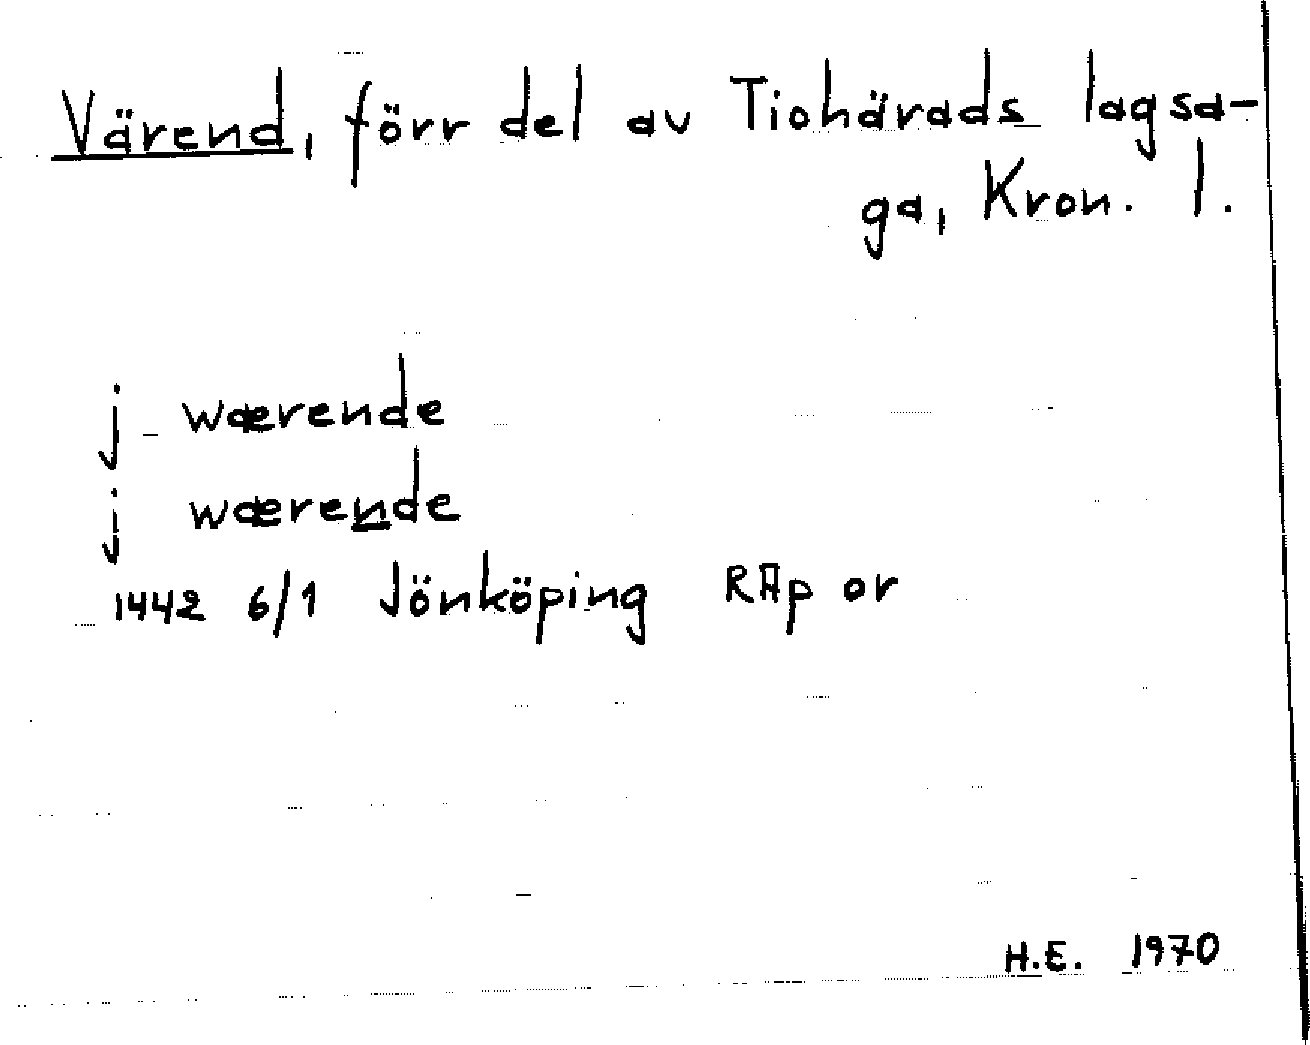 Värend, förr del av Tiohärads lagsa-
ga, Kron. l.
j wærende
j wærende
1442 6/1 Jönköping RAp or
H.E. 1970